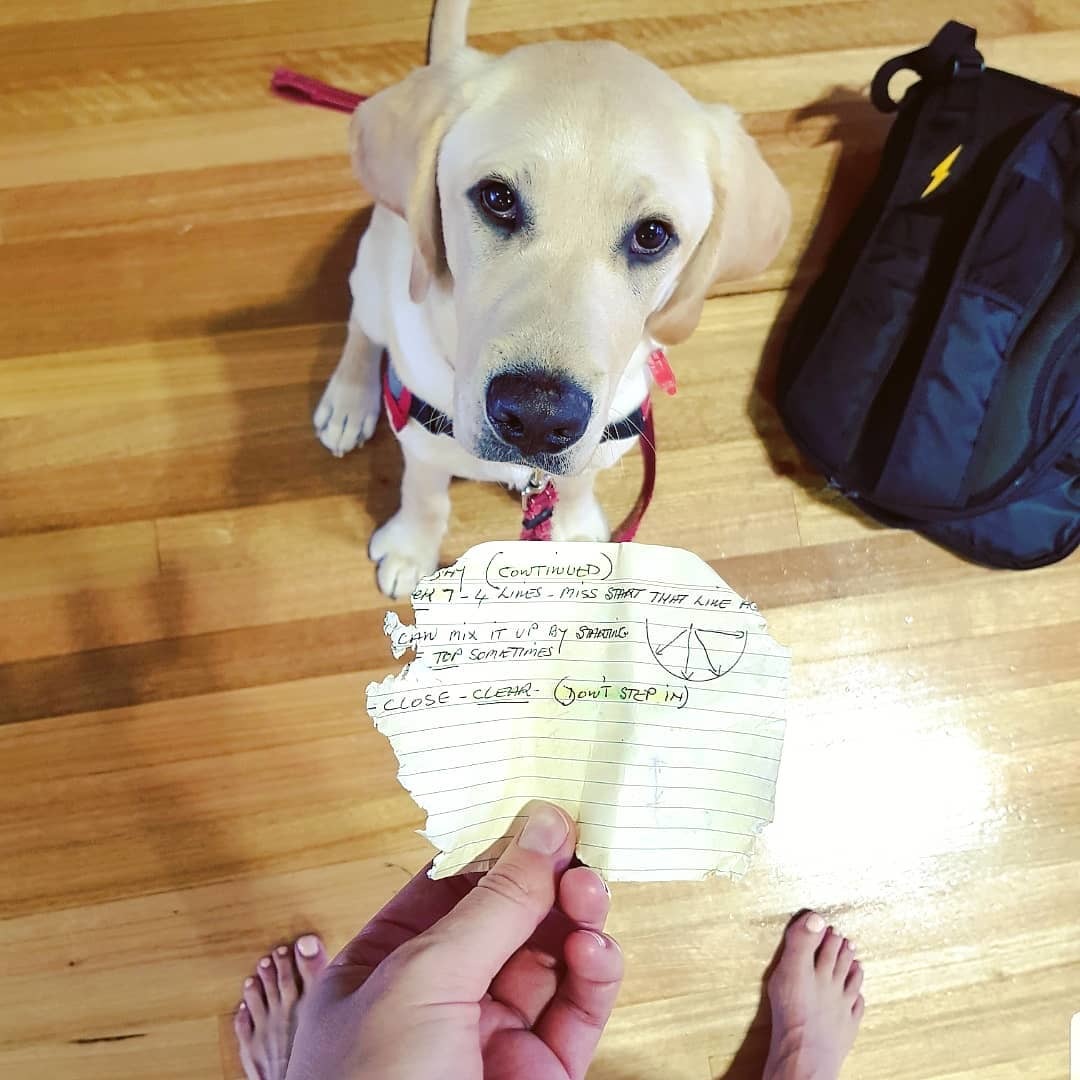 (CONTINUED)
7-4 LINES - MISS START THAT LINE
CAN MIX IT UP BY STARTING
TOP SOMETIMES
- CLOSE - CLEAR - (DON'T STEP IN)